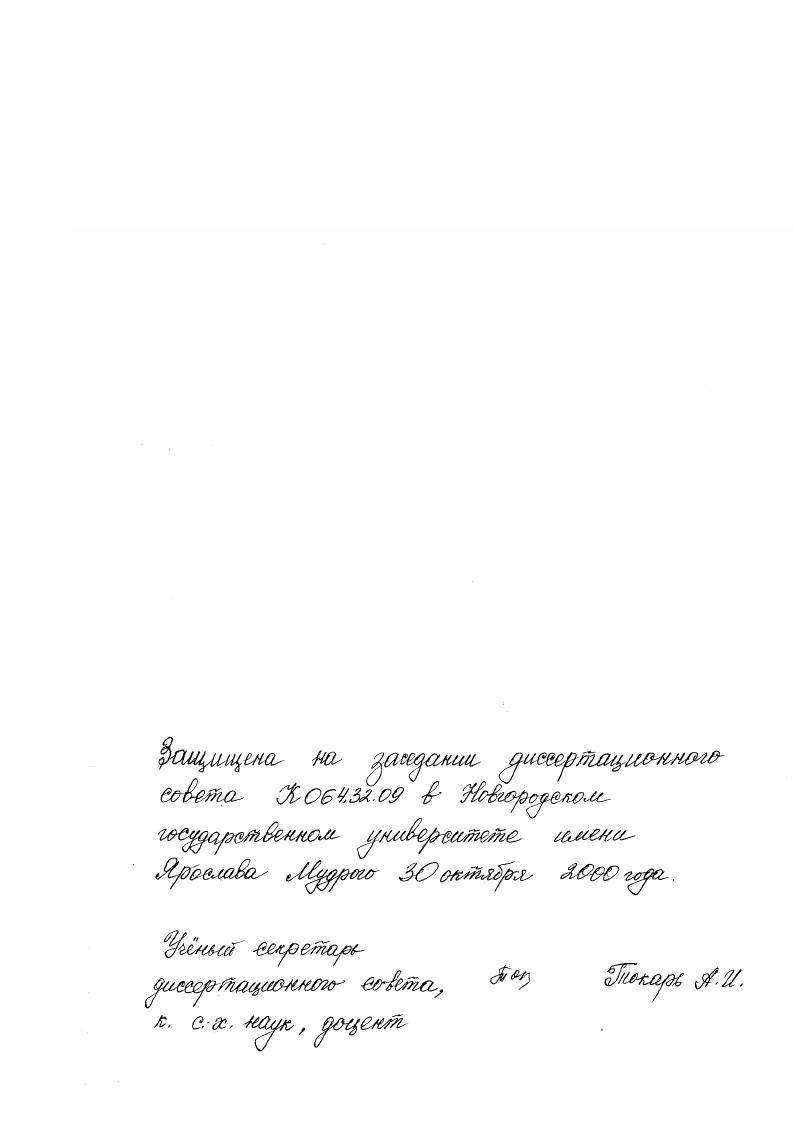 Защищена на заседании диссертационного
совета К 064.32.09 в Новгородском
государственном университете имени
Ярослава Мудрого 30 октября 2000 года.
Учёный секретарь
диссертационного совета, Ток Токарь А.И.
к. с.-х. наук, доцент